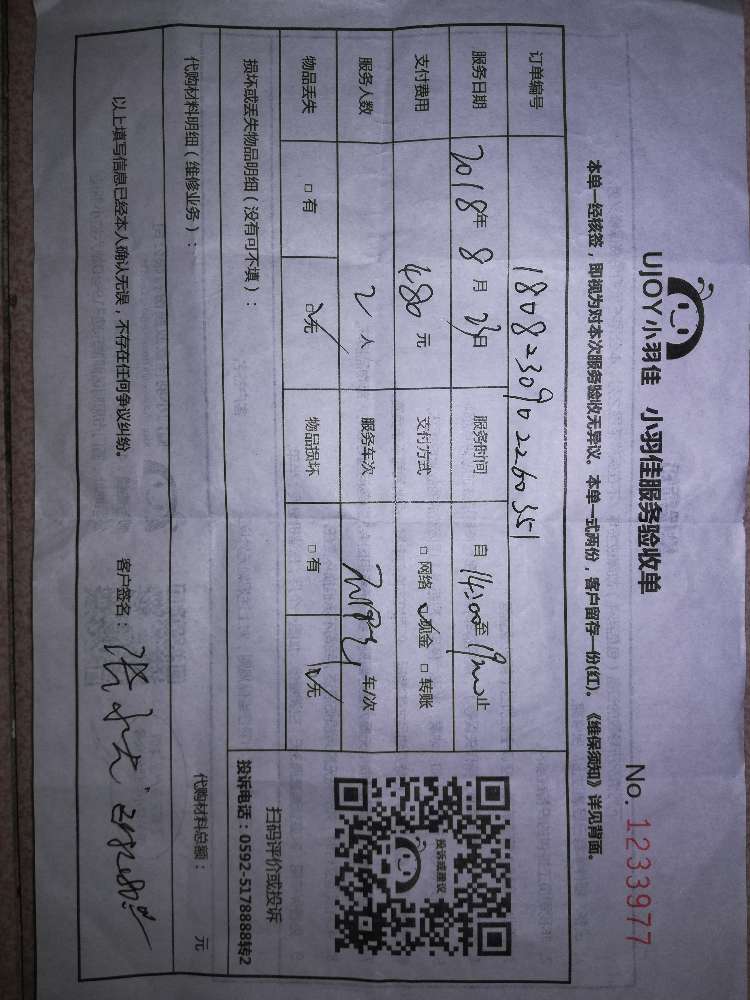 UJOY小羽佳 小羽佳服务验收单
No. 1233977
本单一经核签，即视为对本次服务验收无异议。本单一式两份，客户留存一份(红)。《维保须知》详见背面。
订单编号 1808230902260351
服务日期 2018年8月23日 服务时间 自14:00至19:00止
支付费用 480元 支付方式 □网络 ☑现金 □转账
服务人数 2人 服务车次 车/次
物品丢失 □有 ☑无 物品损坏 □有 ☑无
投诉或建议
扫码评价或投诉
投诉电话：0592-5178888转2
损坏或丢失物品明细（没有可不填）：
代购材料明细（维修业务）： 代购材料总额： 元
以上填写信息已经本人确认无误，不存在任何争议纠纷。 客户签名：